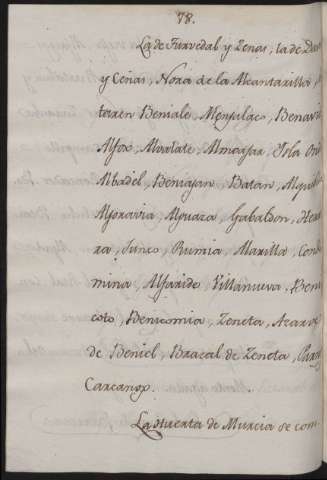 78.
La de Turvedal y Zenas, la de
y Ceñas, Nora de la Alcantarilla,
taren Beniale, Menjalaco, Benavi
Alfox, Alvalate, Almoajar, Tola
Albadel, Beniajan, Batan,
Aljoravia, Alguaza, Gabaldon,
ra, Junco, Rumia, Alarilla, Con
mina, Alfaride, Villanueva, Beni
coto, Benicomia, Zeneta, Azarve
de Beniel, Brazal de Zeneta,
Carcanox.
La Huerta de Murcia se com-